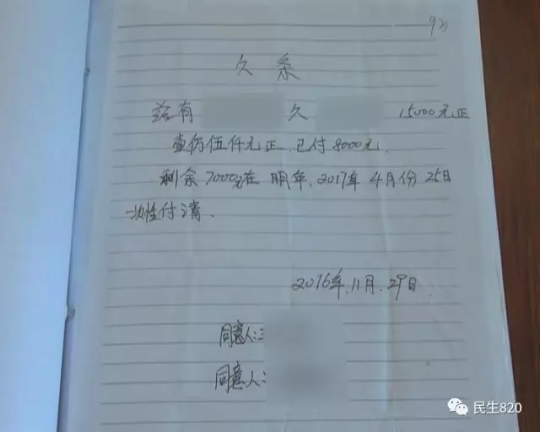 欠条
兹有 欠 15000元正
壹仿伍仟元正.已付8000元.
剩余7000元在明年.2017年4月份25日
一次性付清.
2016年.11月.29日.
同意人:
同意人:
民生820